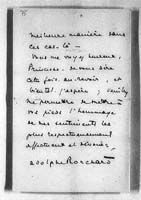 meilleure manière dans
ces cas-là —
Vous me voyez heureux,
Princesse, de vous dire
cette fois, au-revoir, et
bientôt j'espère ; veuillez
me permettre de mettre à
vos pieds l'hommage
de mes sentiments les
plus respectueusement
affectueux et dévoués,
Adolphe Borchard